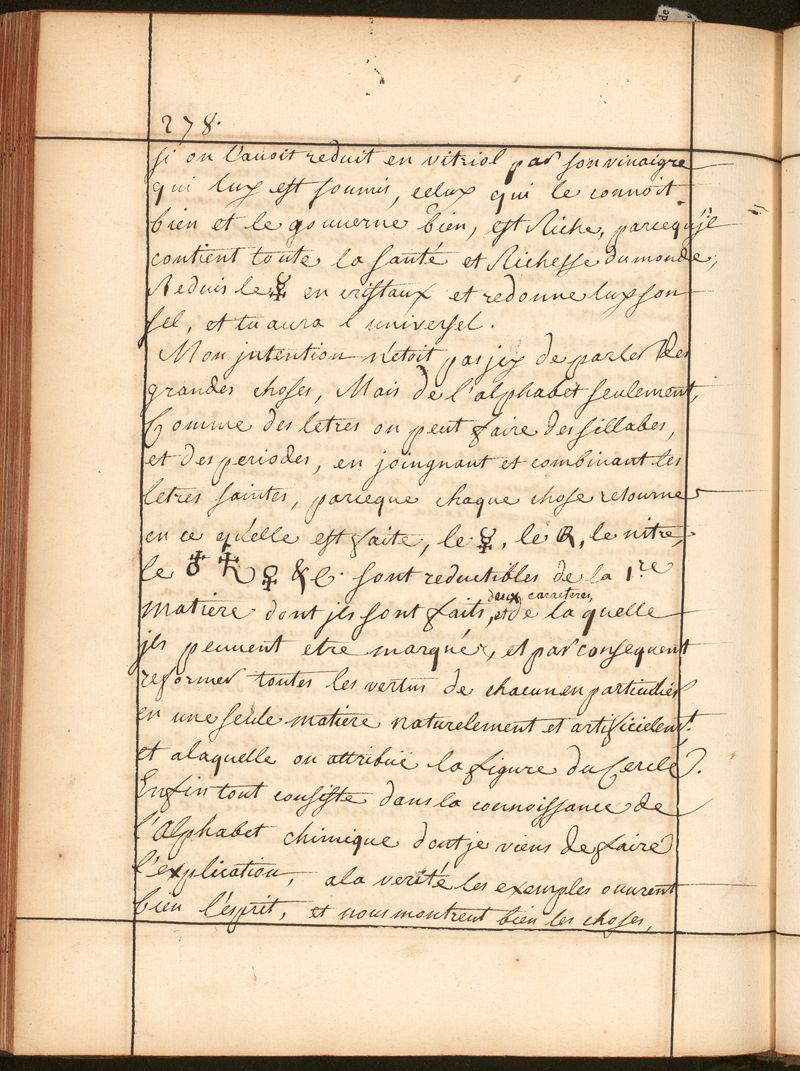 278.
si on l'auoit reduit en vitriol par son vinaigre
qui luy est soumis, celuy qui le connoit
bien et le gouuerne bien, est Riche, parcequ'jl
contient toute la santé et Richesse du monde,
Reduis le ☿ en cristaux et redonne luy son
sel, et tu aura l'universel.
Mon jntention n'etoit pas jcy de parler des
grandes choses, Mais de l'alphabet seulement,
Comme des letres on peut faire des sillabes,
et des periodes, en joingnant et combinant les
letres saintes, parceque chaque chose retourne
en ce qu'elle est faite, le ☿, le R, le nitre,
le ♁ ♀ &c. sont reductibles de la 1.re
matiere dont jls sont faits, deux caracteres, et de laquelle
jls peuuent etre marqués, et par consequent
reformer toutes les vertus de chacun en particulier
en une seule matiere naturelement et artificielem.t
et alaquelle on attribuë la figure du Cercle.
Enfin tout consiste dans la connoissance de
l'Alphabet chimique dont je viens de faire
l'explication, ala verité les exemples ouurent
bien l'esprit, et nous montrent bien les choses,